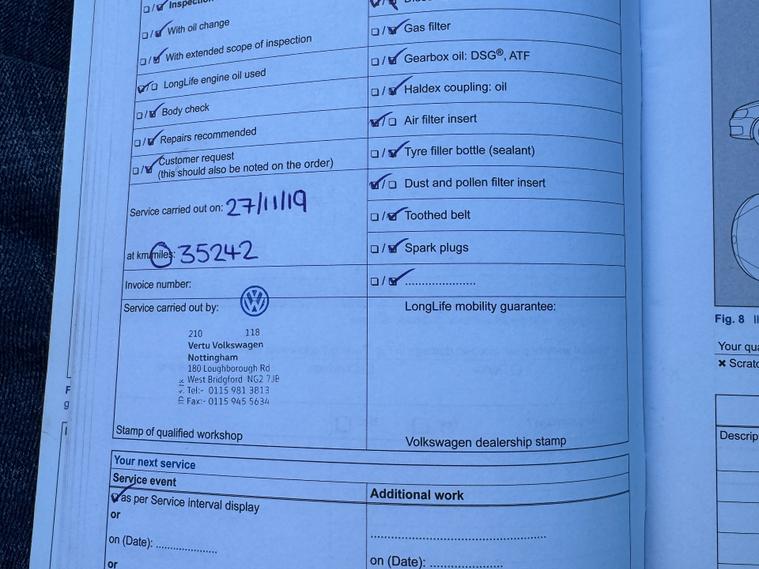 Inspection
With oil change
With extended scope of inspection
LongLife engine oil used
Body check
Repairs recommended
Customer request
(this should also be noted on the order)
Service carried out on: 27/11/19
at km/miles: 35242
Invoice number:
Service carried out by:
210 118
Vertu Volkswagen
Nottingham
180 Loughborough Rd
West Bridgford NG2 7JB
Tel:- 0115 981 3813
Fax:- 0115 945 5634
Stamp of qualified workshop
Gas filter
Gearbox oil: DSG®, ATF
Haldex coupling: oil
Air filter insert
Tyre filler bottle (sealant)
Dust and pollen filter insert
Toothed belt
Spark plugs
LongLife mobility guarantee:
Volkswagen dealership stamp
Your next service
Service event
as per Service interval display
or
on (Date):
or
Additional work
on (Date):
Fig. 8
Your qua
Scratc
Descrip